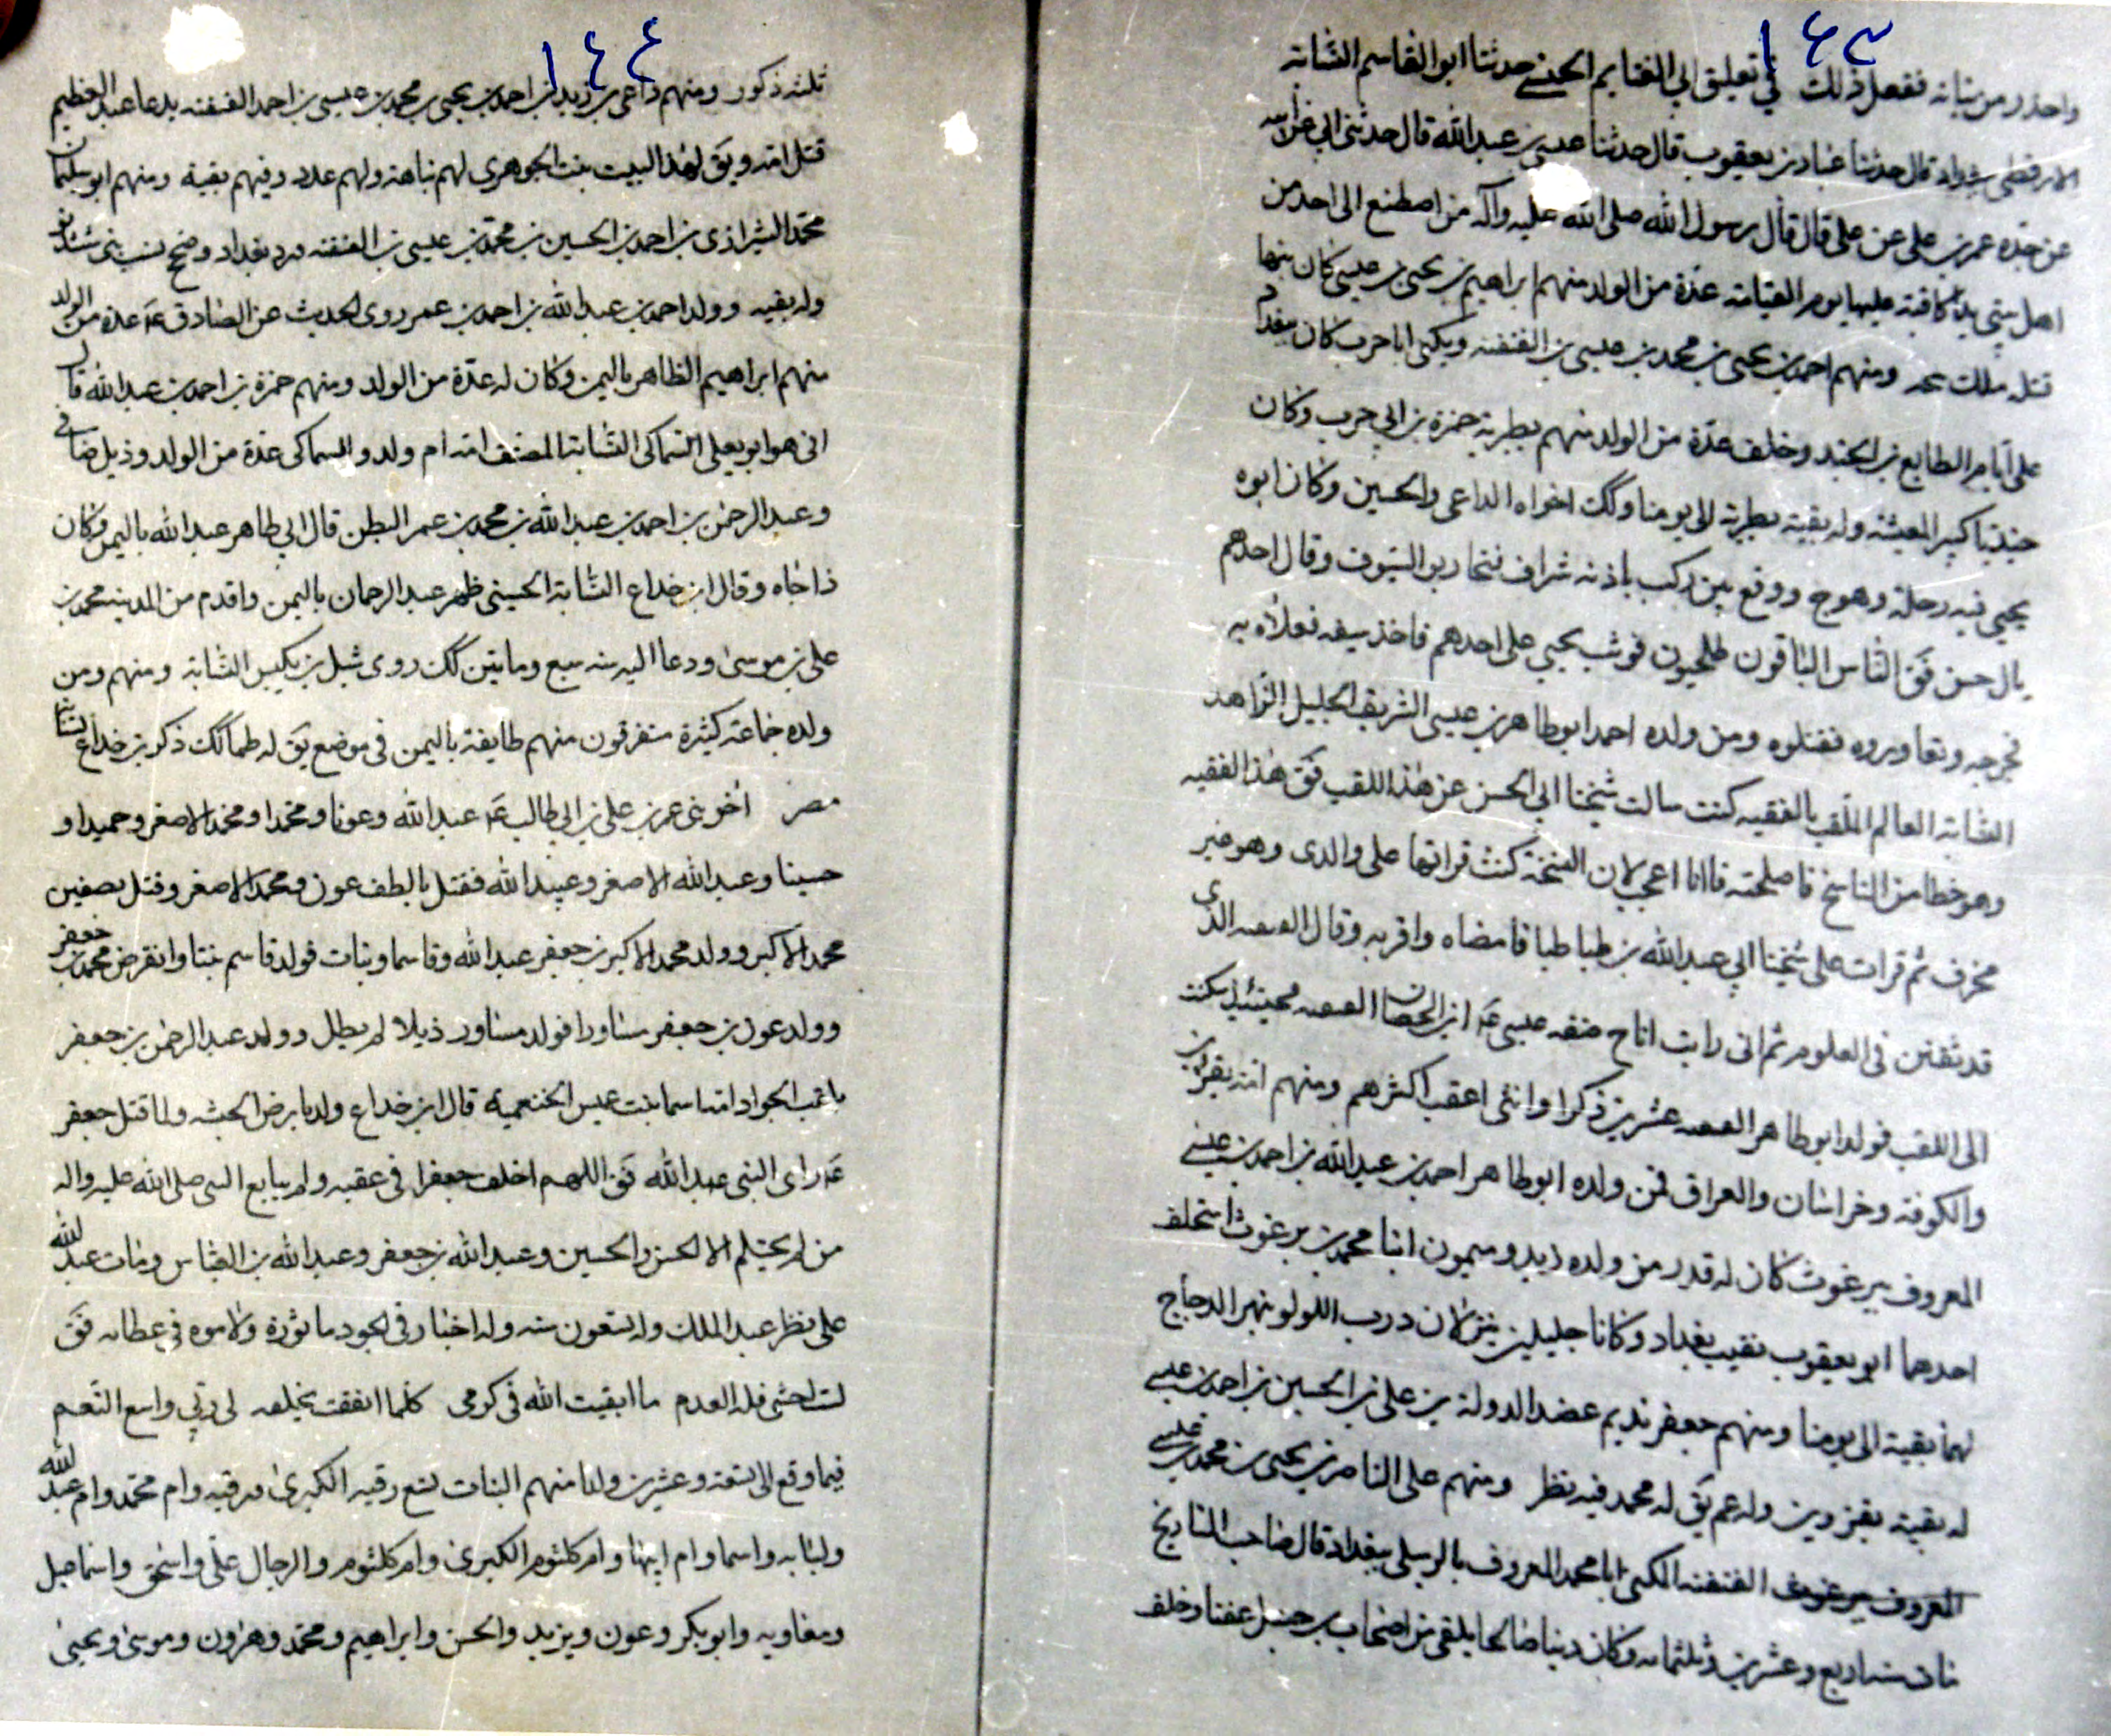 ١٤٣
واحذر من بناته ففعل ذلك في تعليق ابي الغنايم الحسنى حدثنا ابو القاسم النسابة
قال حدثنا عباد بن يعقوب قال حدثنا عيسى بن عبدالله قال حدثني ابي عن ابيه
عن جده عمر بن على عن على قال قال رسول الله صلى الله عليه واله من اصطنع الى احد من
اهل بيتي يدا كافيته عليها يوم القيامة عدة من الولد منهم ابراهيم بن يحيى بن عيسى كان بينها
قتله ملك ومنهم احمد بن يحيى بن محمد بن عيسى بن الغنفنه ويكنى ابا حرب كان
على ايام الطايع بن الجند وخلف عدة من الولد منهم بطبرية حمزة بن ابي حرب وكان
جنديا كبير المعيشة وله بقية بطبرية الى يومنا وكك اخواه الداعي والحسين وكان ابوه
يحيى فيه رحلة وهوج ووقع بين ركب باذنه شراف فتحاربو السيوف وقال احدهم
يال حسن فق الناس الباقون طلحيون فوثب يحيى على احدهم فاخذ سيفه فعلاه به
فجرحه وتعاوروه فقتلوه ومن ولده احمد ابو طاهر بن عيسى الشريف الجليل الزاهد
النسابة العالم الملقب بالفقيه كنت سالت شيخنا ابي الحسن عن هذا اللقب فق هذا الفقيه
وهو خطا من الناسخ فاصلحته فاانا اعجب لان النسخة كنت قراتها على والدى وهو خبر
محرف ثم قرات على شيخنا ابي عبدالله بن طباطبا فامضاه واقر به وقال الذى
قد تفنن في العلوم ثم انى رايت
الى اللقب فولد ابو طاهر عشرين ذكرا وانثى اعقب اكثرهم ومنهم
والكوفة وخراسان والعراق فمن ولده ابو طاهر احمد بن عبدالله بن احمد بن عيسى
المعروف ببرغوث كان له قدر من ولده زيد وميمون ابنا محمد بن برغوث استخلف
احدهما ابو يعقوب نقيب بغداد وكانا جليلين ينزلان درب اللولو بنهر الدجاج
لهما بقية الى يومنا ومنهم جعفر نديم عضد الدولة بن على بن الحسين بن احمد بن عيسى
له بقية بقزوين وله عم يق له محمد فيه نظر ومنهم على الناصر بن يحيى بن محمد بن عيسى
المعروف ببرغوث الغنفنه المكنى ابا محمد المعروف بالرسلى ببغداد قال صاحب التاريخ
مات سنة اربع وعشرين وثلثمائه وكان دينا صالحا وخلف
١٤٤
ثلثه ذكور ومنهم داعى بن زيد بن احمد بن يحيى بن محمد بن عيسى بن احمد الغنفنه يدعا عبد العظيم
قتل امه ويق لهذا البيت بنت الجوهرى لهم نباهة ولهم عدد وفيهم بقية ومنهم ابو سليمان
محمد الشيرازى بن احمد بن الحسين بن محمد بن عيسى بن الغنفنه ورد بغداد وضح نسب بنى
وله بقيه وولد احمد بن عبدالله بن احمد بن عمر روى الحديث عن الصادق ع عدة من الولد
منهم ابراهيم الظاهر باليمن وكان له عدة من الولد ومنهم حمزة بن احمد بن عبدالله قال
ابى هو ابو يعلى السماكى النسابة المصنف امه ام ولد وللسماكى عدة من الولد وذيل
وعبد الرحمن بن احمد بن عبدالله بن محمد بن عمر البطن قال ابي طاهر عبدالله باليمن وكان
ذا جاه وقال ابن خداع النسابة الحسينى ظهر عبد الرحمان باليمن واقدم من المدينه محمد بن
على بن موسى ودعا اليه سنه سبع وماتين كك روى شبل بن تكين النسابة ومنهم ومن
ولده جماعة كثيرة متفرقون منهم طايفة باليمن في موضع يق له ظما كك ذكر بن خداع لنسا
مصر اخو بنى عمر بن على بن ابي طالب ع عبدالله وعونا ومحمدا ومحمد الاصغر وحميدا و
حسينا وعبدالله الاصغر وعبيد الله فقتل بالطف عون ومحمد الاصغر وقتل بصفين
محمد الاكبر وولد محمد الاكبر بن جعفر عبدالله وقاسما وبنات فولد قاسم بنتا وانقرض محمد بن جعفر
وولد عون بن جعفر مساورا فولد مساور ذيلا لم يطل وولد عبد الرحمن بن جعفر
الجواد امه اسما بنت عميس الخثعمية قال ابن خداع ولد بارض الحبشه ولما قتل جعفر
ع راى النبى عبدالله فق اللهم اخلف جعفرا في عقبه ولم يبايع النبى صلى الله عليه واله
من لم يحتلم الا الحسن والحسين وعبدالله بن جعفر وعبدالله بن العباس ومات عبد الله
على نظر عبد الملك وله تسعون سنه وله اخبار في الجود ماثورة ولاموه في عطائه فق
لست اخشى قلة العدم ما ابقيت الله في كرمى كلما انفقت يخلفه لى ربي واسع النعم
فيما وقع الى تسعة وعشرين ولدا منهم البنات تسع رقيه الكبرى ورقيه وام محمد وام عبد الله
ولبابه واسما وام ابيها وام كلثوم الكبرى وام كلثوم والرجال على واسحق واسماعيل
ومعاويه وابو بكر وعون ويزيد والحسن وابراهيم ومحمد وهرون وموسى ويحيى